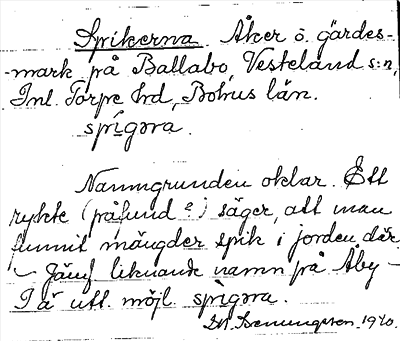 Spikerna Åker ö. gärdes-
-mark på Ballabo, Vesteland s:n,
Inl. Torpe hd, Bohus län.
spígəra.
Namngrunden oklar. Ett
rykte (påfund?) säger, att man
funnit mängder spik i jorden där.
– Jämf liknande namn på Åby –
I ä utt. möjl. spìgəra.
1920.